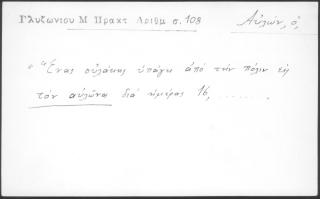 Γλυζωνίου Μ Πρακτ Αριθμ σ. 108
Αὐλών, ὁ,
"Ἕνας οὐλάκης ὑπάγει ἀπό τήν πόλιν εἰς
τόν αὐλῶνα διά ἡμέρας 16, .......